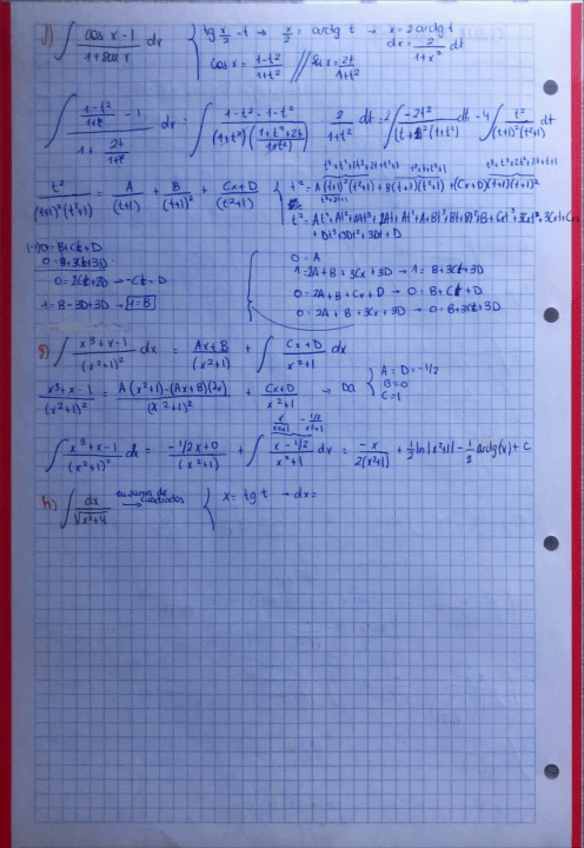 f) ∫ (cos x - 1)/(1 + sen x) dx { tg x/2 = t → x/2 = arctg t → x = 2 arctg t
dx = 2/(1+x²) dt
cos x = (1-t²)/(1+t²) // sen x = 2t/(1+t²)
∫ ((1-t²)/(1+t²) - 1)/(1 + 2t/(1+t²)) dx = ∫ (1-t²-1-t²)/((1+t²)((1+t²+2t)/(1+t²))) · 2/(1+t²) dt = 2∫ (-2t²)/((t+1)²(1+t²)) dt = -4∫ t²/((t+1)²(t²+1)) dt
t²/((t+1)²(t²+1)) = A/(t+1) + B/(t+1)² + (Cx+D)/(t²+1) { t² = A(t+1)²(t²+1) + B(t+1)(t²+1) + (Cx+D)(t+1)(t+1)²
+ Dt³+3Dt²+3Dt+D
(-1) 0 = B+Ct+D
0 = B+3Ct+3D
0 = 2Ct+2D → -Ct = D
1 = B-3D+3D → 1=B
0 = A
1 = 2A+B+3Cx+3D → 1 = B+3Ct+3D
0 = 2A+B+Cx+D → 0 = B+Ct+D
0 = 2A+B+3Cx+3D → 0 = B+3Ct+3D
g) ∫ (x³+x-1)/(x²+1)² dx = (Ax+B)/(x²+1) + ∫ (Cx+D)/(x²+1) dx
(x³+x-1)/(x²+1)² = (A(x²+1)-(Ax+B)(2x))/(x²+1)² + (Cx+D)/(x²+1) → Da { A = D = -1/2
B = 0
C = 1
x/(x²+1) - (1/2)/(x²+1)
∫ (x³+x-1)/(x²+1)² dx = (-1/2x+0)/(x²+1) + ∫ (x-1/2)/(x²+1) dx = -x/(2(x²+1)) + 1/2 ln|x²+1| - 1/2 arctg(x) + C
h) ∫ dx/√(x²+4) suma de cuadrados → { x = tg t → dx =